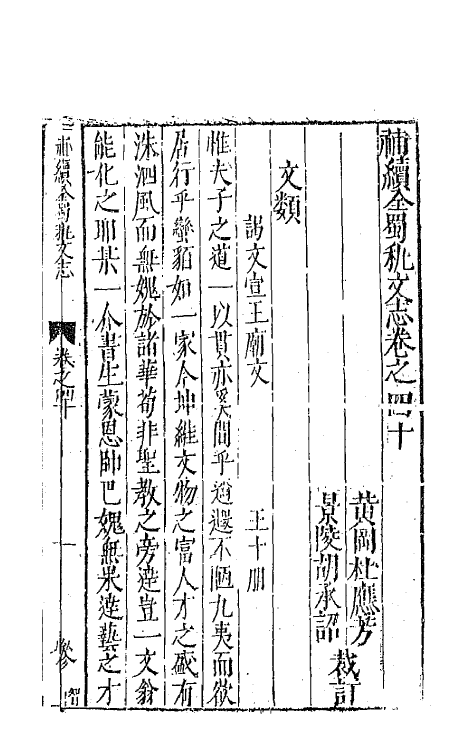 補續全蜀秇文志卷之四十
黄岡杜應芳
景陵胡承詔
裁訂
文類
謁文宣王廟文 王十朋
惟夫子之道一以貫亦奚間乎遐邇不陋九夷而欲
居行乎蠻貊如一家今坤維文物之富人才之盛有
洙泗風而無媿於諸華苟非聖教之旁達豈一文翁
能化之耶某一介書生蒙恩帥巴媿無果達藝之才
補續全蜀秇文志
卷之四十
一